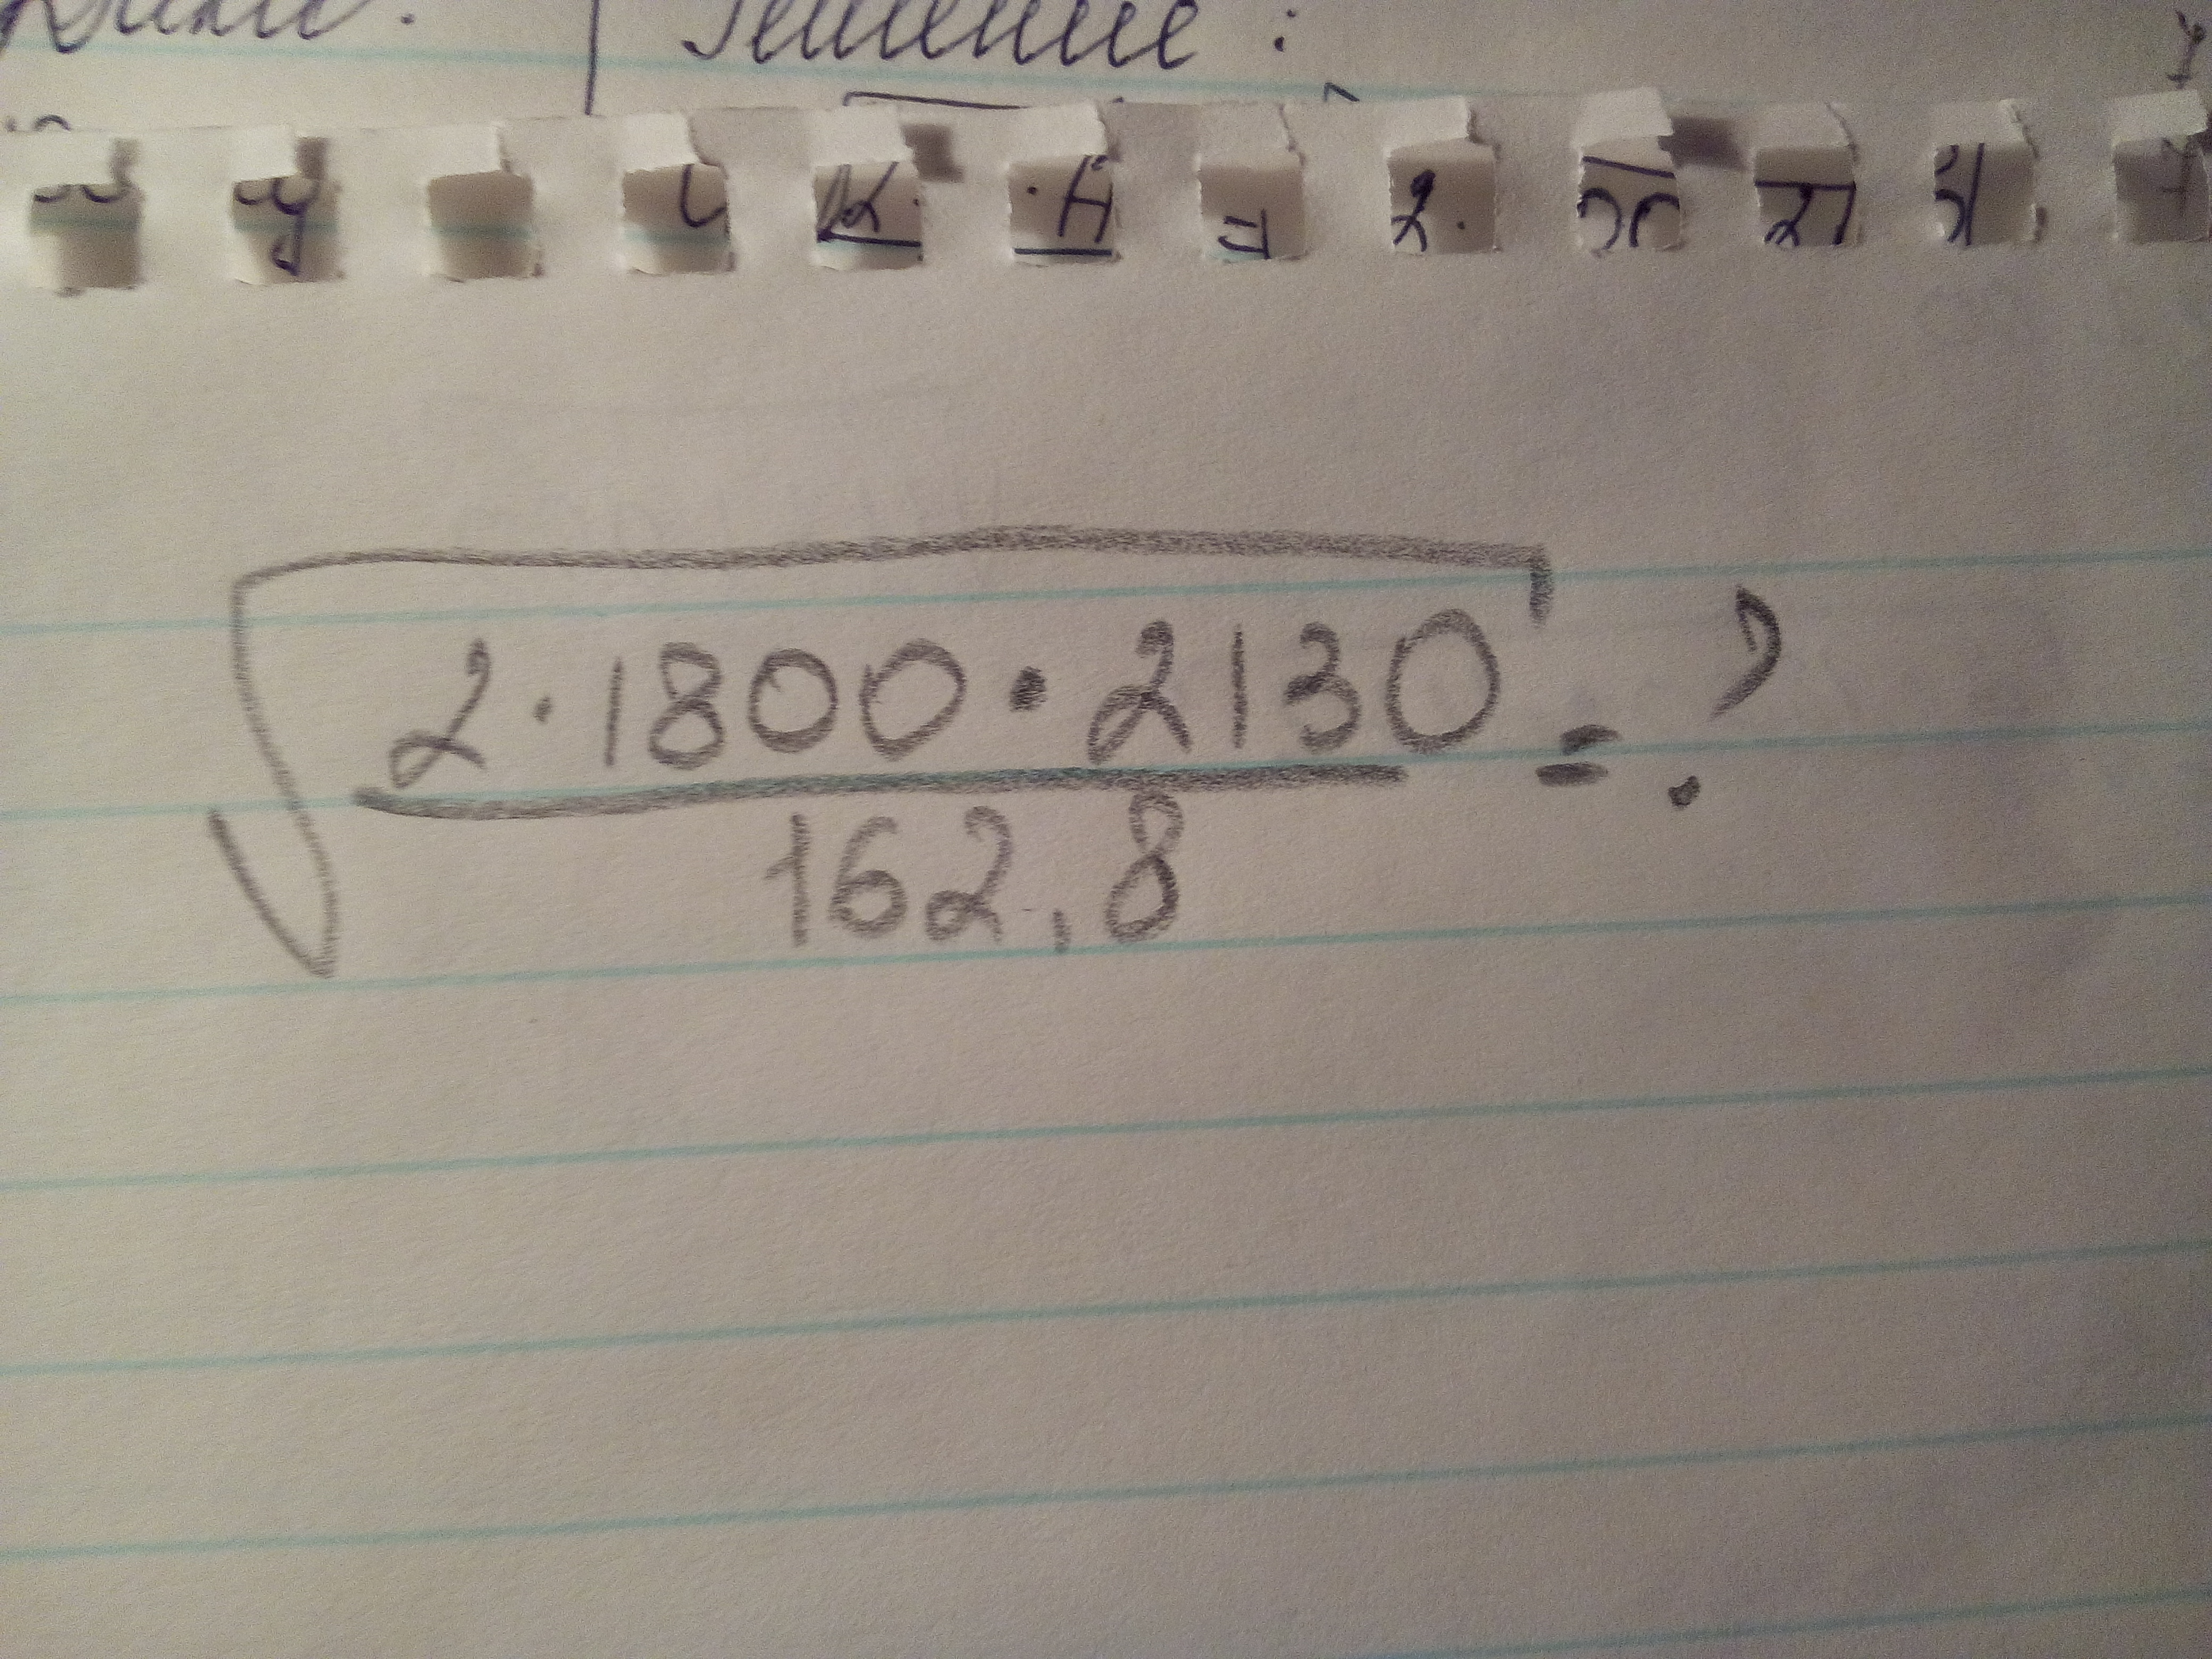 Решение :
√(2·1800·2130 / 162,8) = ?